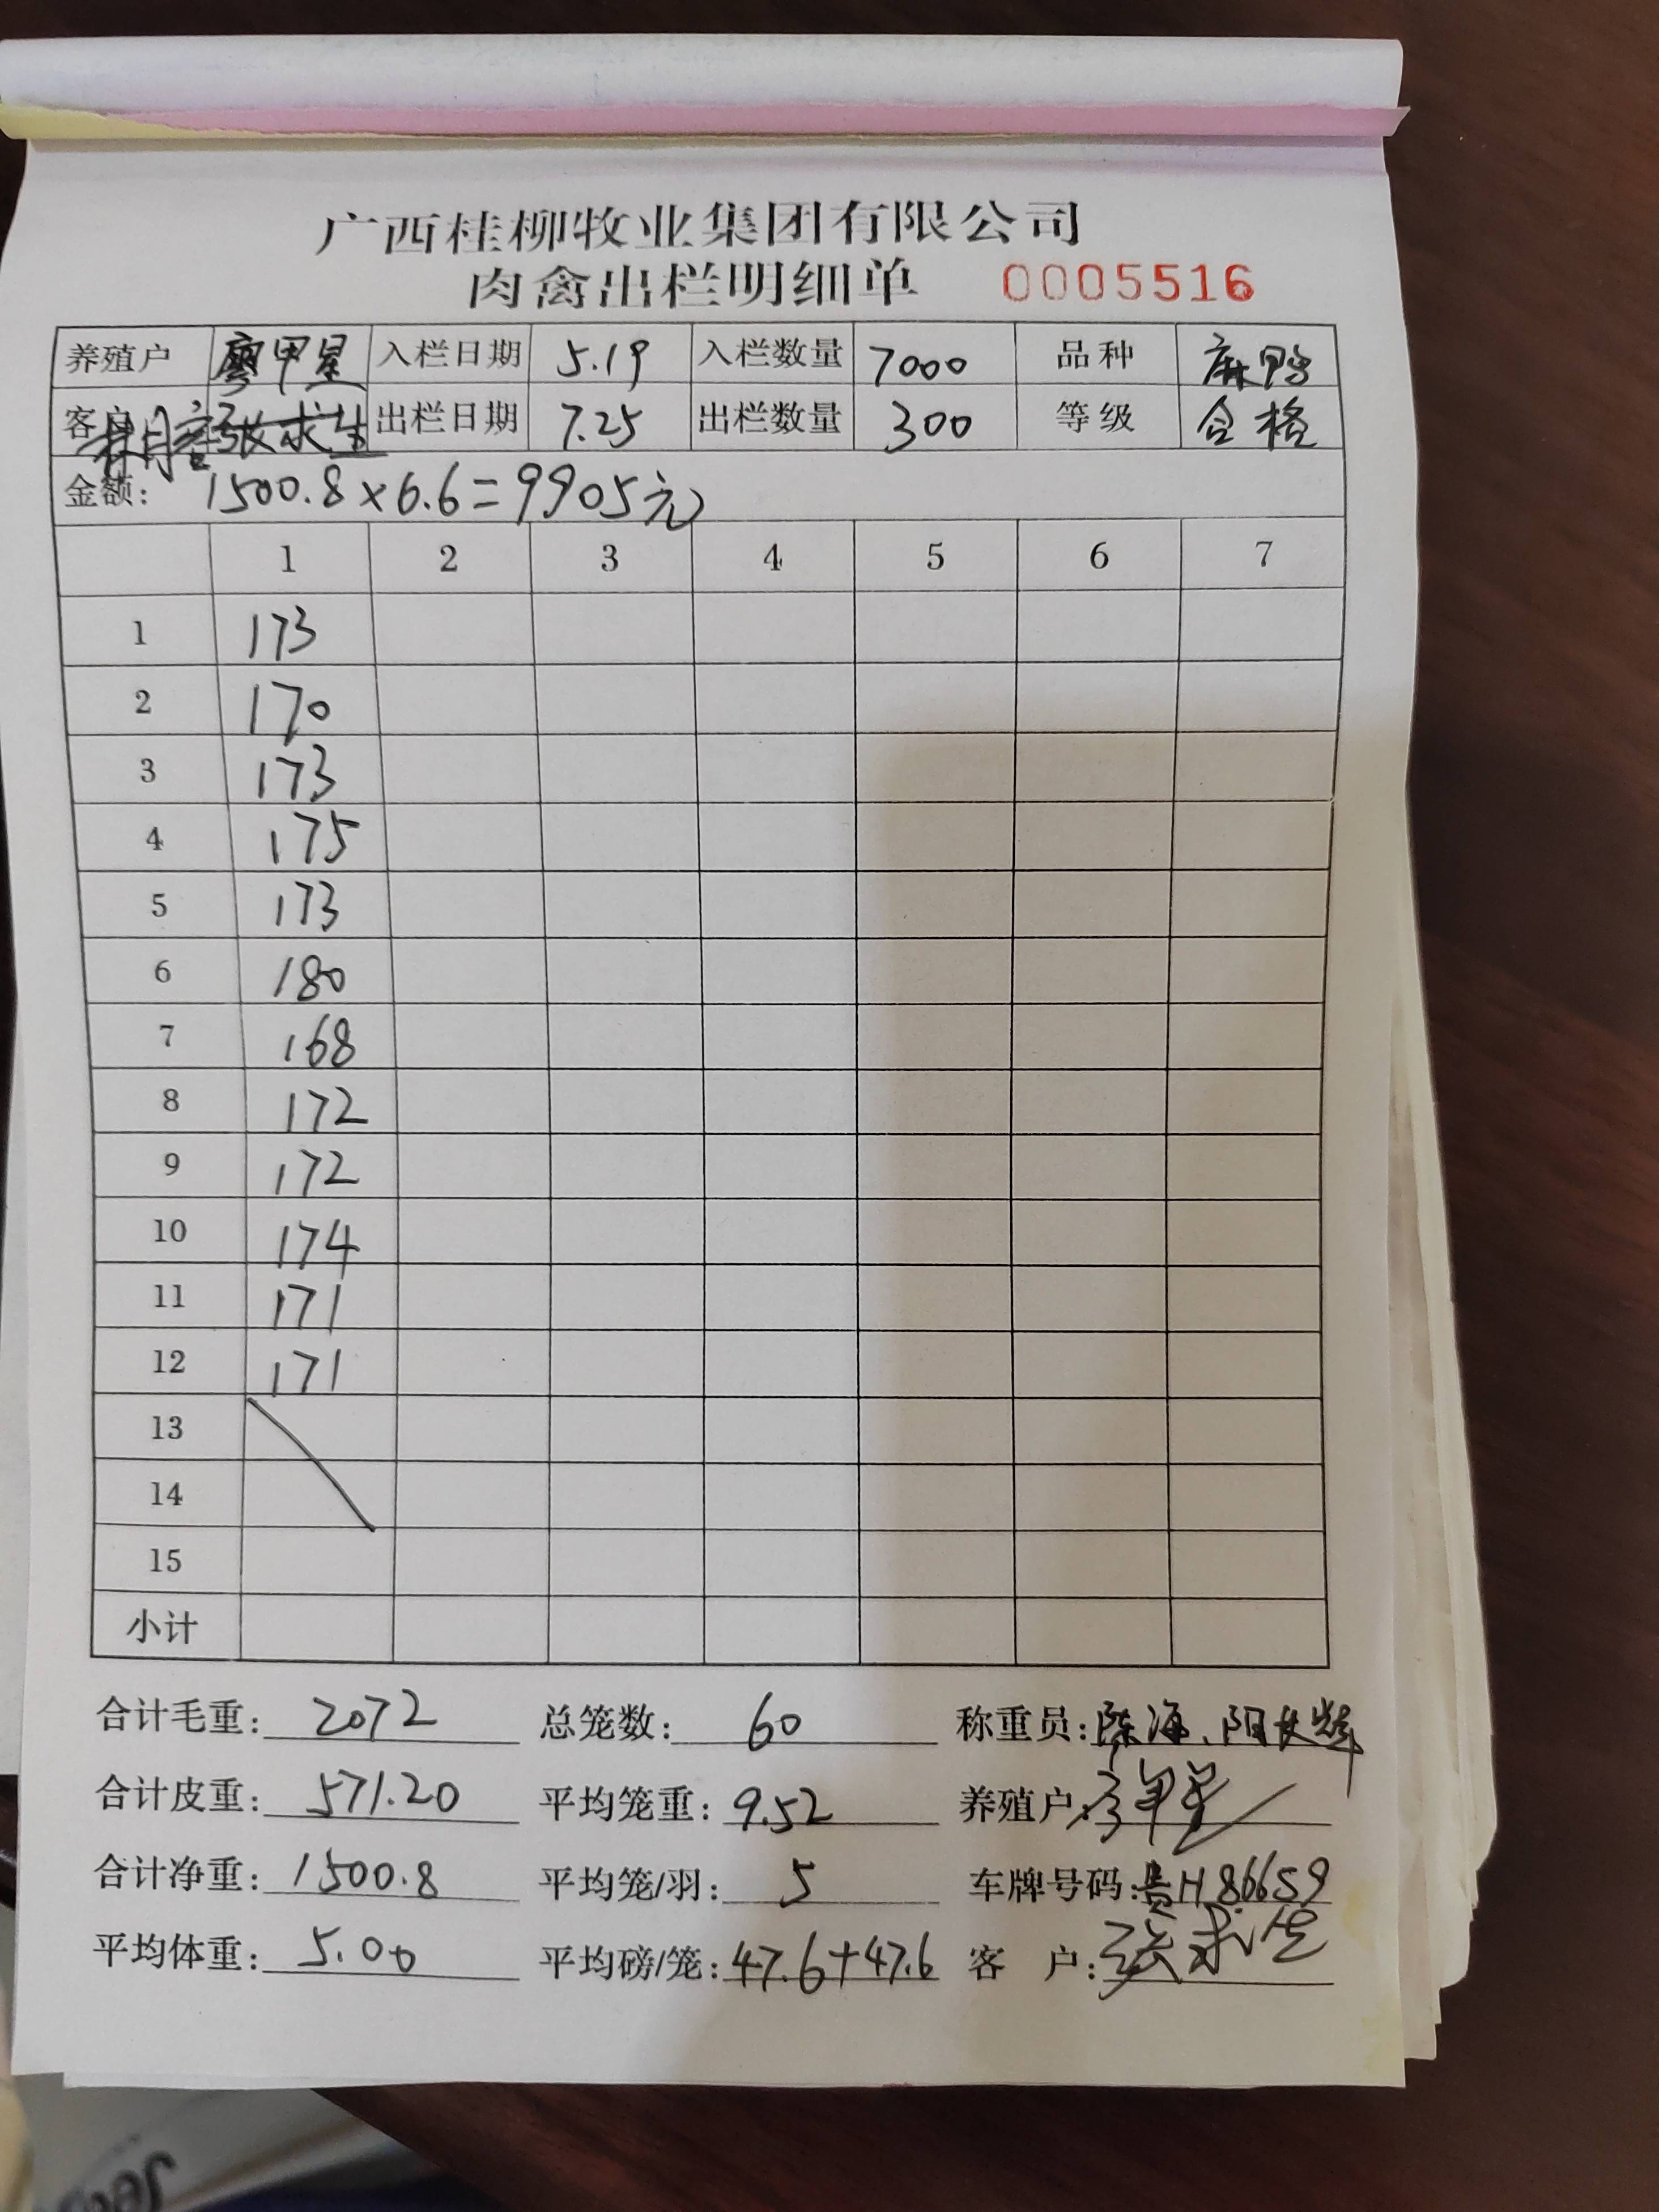 广西桂柳牧业集团有限公司
肉禽出栏明细单 0005516
养殖户 廖甲星 入栏日期 5.19 入栏数量 7000 品种 麻鸭
客户 张求生 出栏日期 7.25 出栏数量 300 等级 合格
金额: 1500.8×6.6=9905元
1 2 3 4 5 6 7
1 173
2 170
3 173
4 175
5 173
6 180
7 168
8 172
9 172
10 174
11 171
12 171
13
14
15
小计
合计毛重: 2072 总笼数: 60 称重员: 陈海、阳
合计皮重: 571.20 平均笼重: 9.52 养殖户: 廖甲星
合计净重: 1500.8 平均笼/羽: 5 车牌号码: 贵H86659
平均体重: 5.00 平均磅/笼: 47.6+47.6 客 户: 张求生